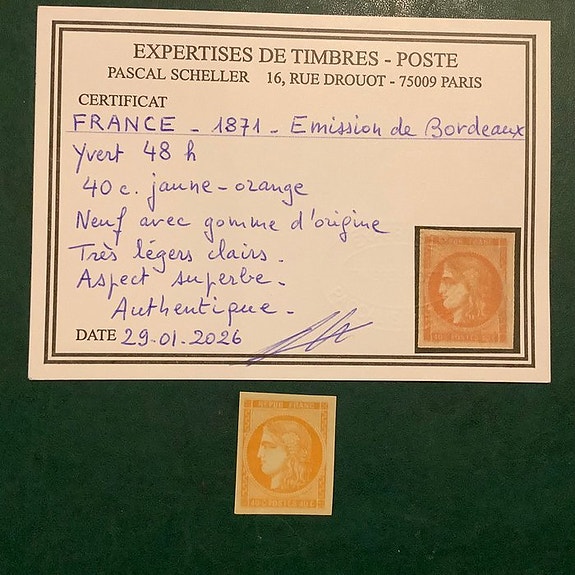 EXPERTISES DE TIMBRES - POSTE
PASCAL SCHELLER 16, RUE DROUOT - 75009 PARIS
CERTIFICAT
FRANCE - 1871 - Emission de Bordeaux
Yvert 48 h
40 c. jaune-orange
Neuf avec gomme d'origine
Très légers clairs.
Aspect superbe.
Authentique.
DATE 29.01.2026
REPUB FRANC
40 C POSTES 40 C
REPUB FRANC
40 C POSTES 40 C